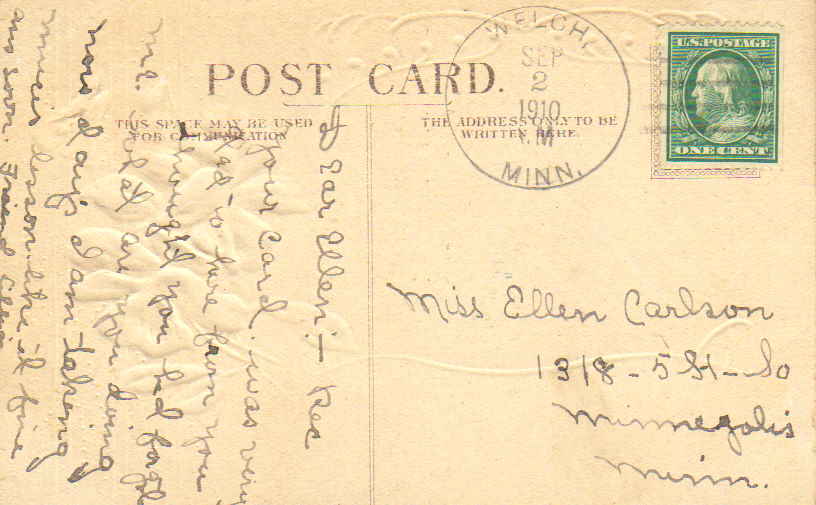 POST CARD.
THIS SPACE MAY BE USED
FOR COMMUNICATION
THE ADDRESS ONLY TO BE
WRITTEN HERE.
WELCH,
SEP
2
1910
MINN.
U.S. POSTAGE
ONE CENT
Dear Ellen:- Rec
your card. was very
glad to here from you
thought you had forgot
me. What are you doing
now days I am taking
music lesson. like it fine
ans soon. Friend
Miss Ellen Carlson
1318-5 St-So
Minneapolis
Minn.